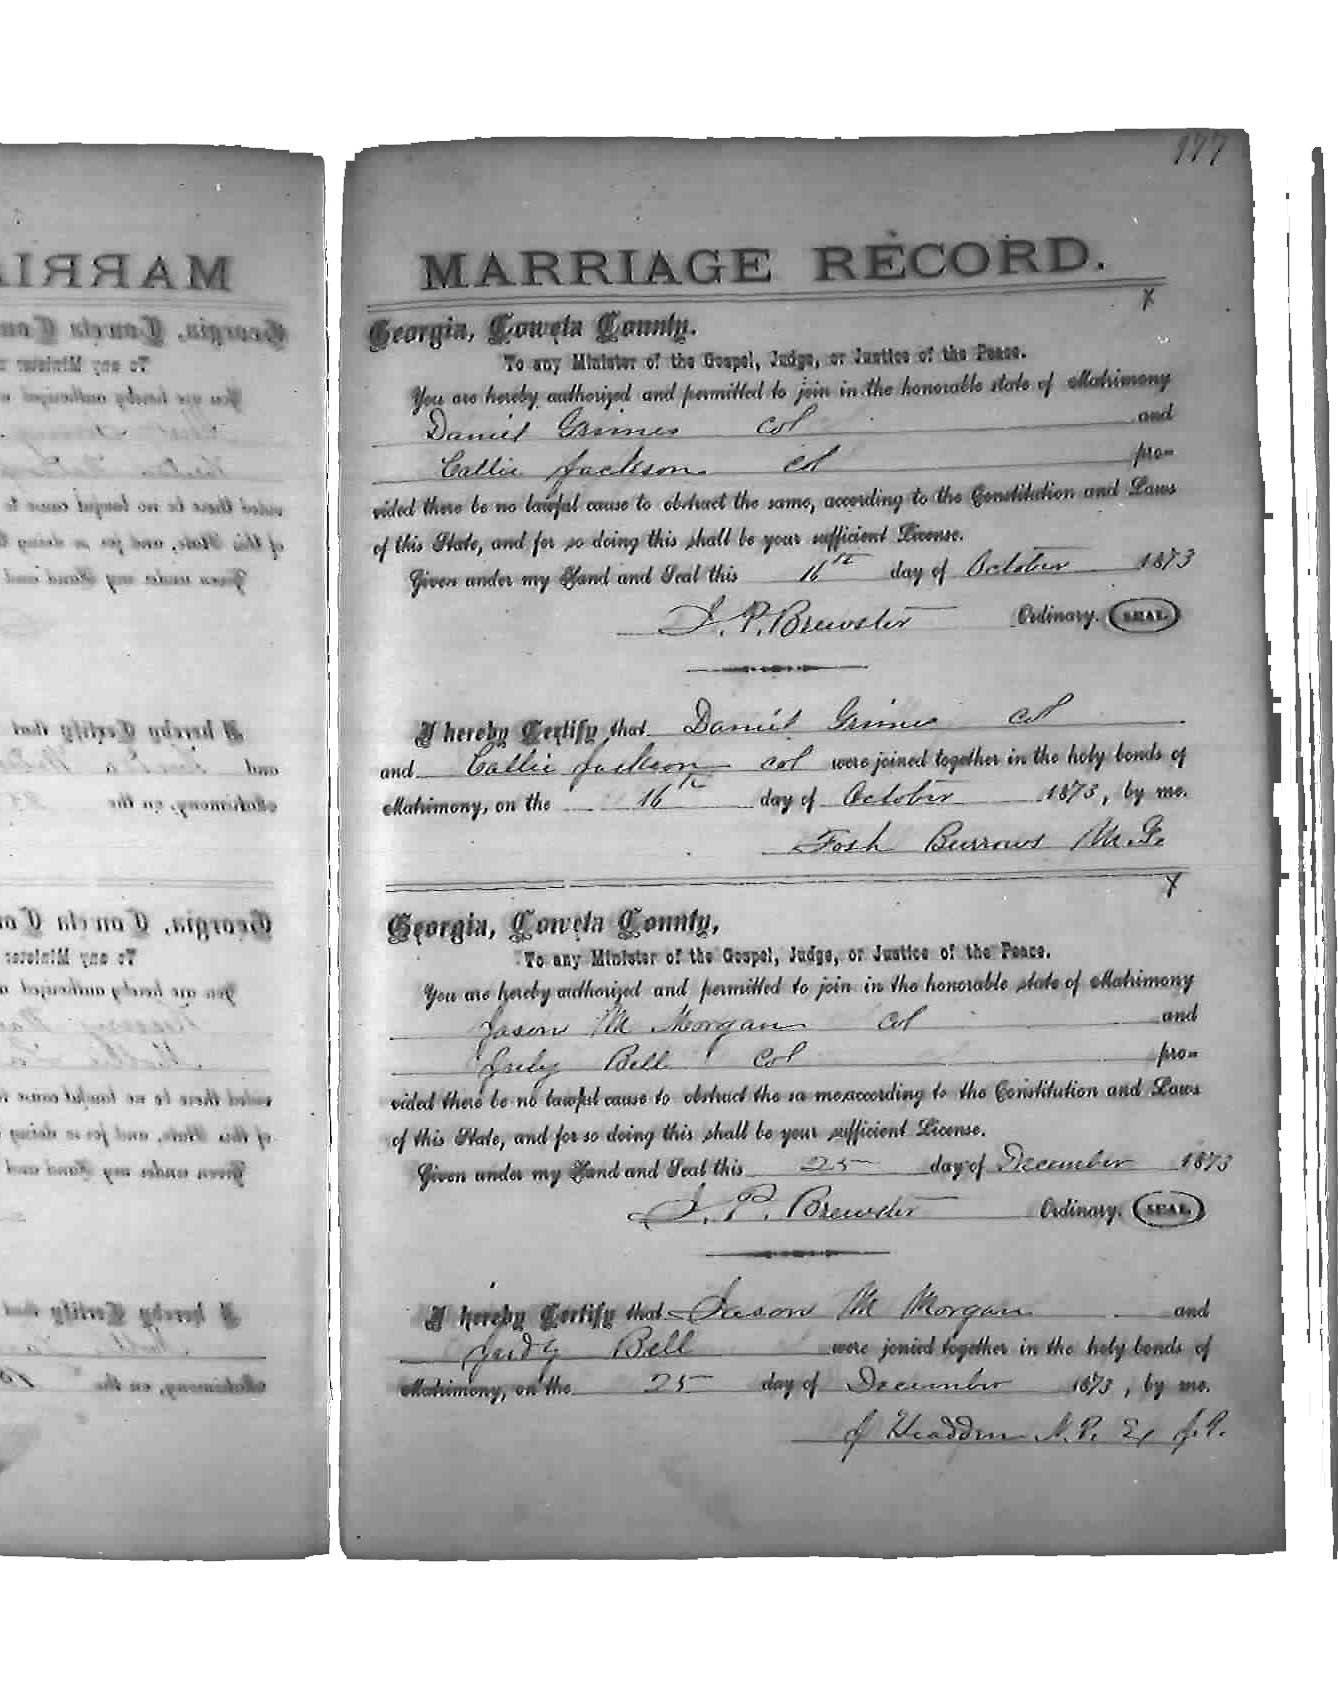 177
MARRIAGE RECORD.
x
Georgia, Coweta County.
To any Minister of the Gospel, Judge, or Justice of the Peace.
You are hereby authorized and permitted to join in the honorable state of Matrimony
Daniel Grimes col and
Callie Jackson col pro=
vided there be no lawful cause to obstruct the same, according to the Constitution and Laws
of this State, and for so doing this shall be your sufficient License.
Given under my Hand and Seal this 16th day of October 1873
J. P. Brewster Ordinary. SEAL.
I hereby Certify that Daniel Grimes col
and Callie Jackson col were joined together in the holy bonds of
Matrimony, on the 16th day of October 1873, by me.
Fosh Burrows M.G.
x
Georgia, Coweta County,
To any Minister of the Gospel, Judge, or Justice of the Peace.
You are hereby authorized and permitted to join in the honorable state of Matrimony
Jason M Morgan col and
Bell col pro=
vided there be no lawful cause to obstruct the sa me,according to the Constitution and Laws
of this State, and for so doing this shall be your sufficient License.
Given under my Hand and Seal this 25 day of December 1873
J. P. Brewster Ordinary. SEAL.
I hereby Certify that Jason M Morgan and
Judy Bell were jonied together in the holy bonds of
Matrimony, on the 25 day of December 1873, by me.
J Headden N.P. Ex J.P.